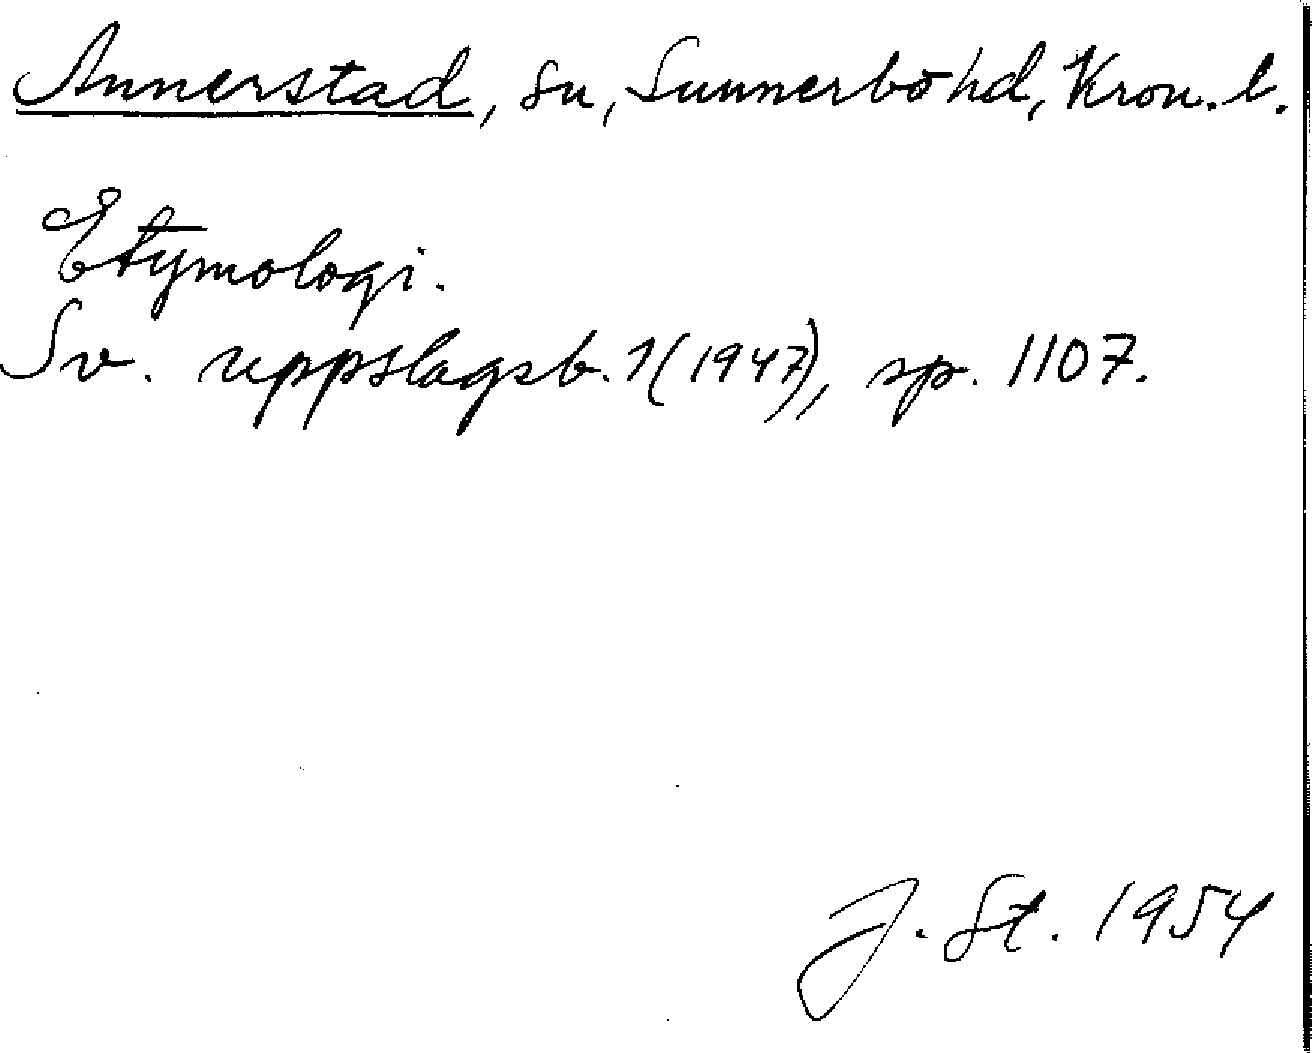 Annerstad, sn, Sunnerbo hd, Kron. l.
Etymologi.
Sv. uppslagsb. 1 (1947), sp. 1107.
J. St. 1954